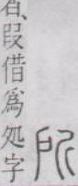 所
者、叚借爲処字